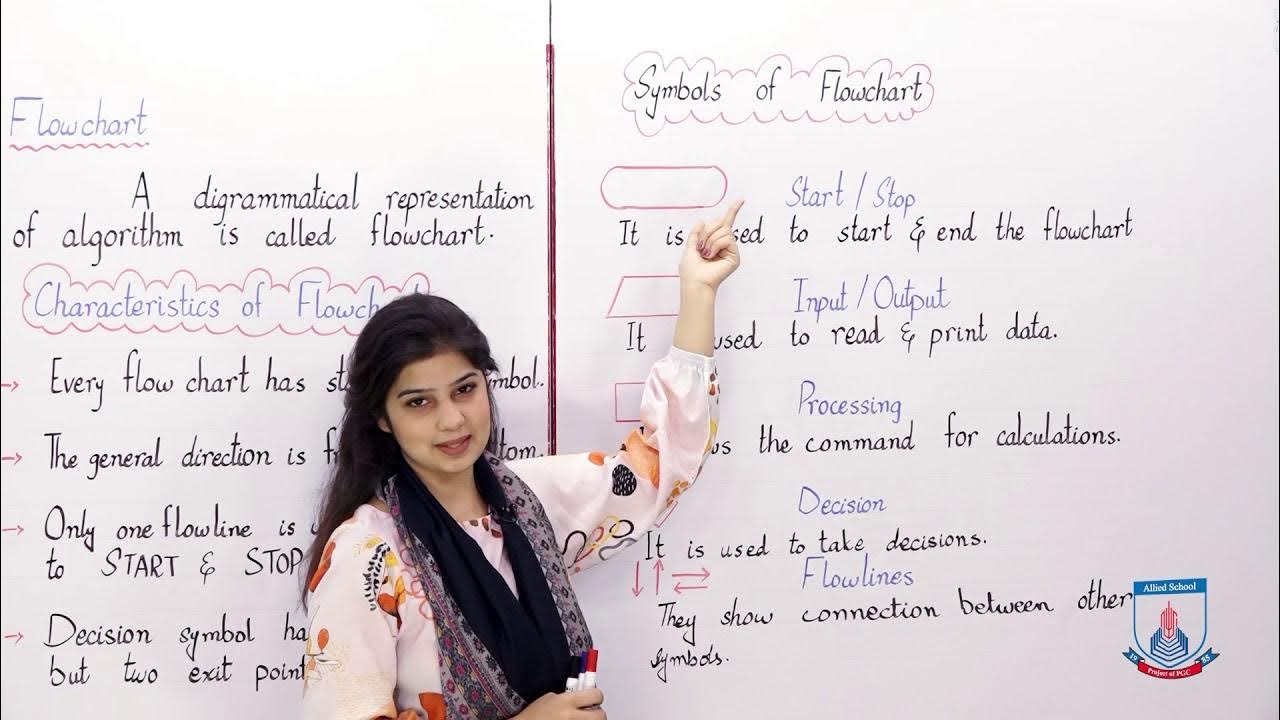 Flowchart
A digrammatical representation
of algorithm is called flowchart.
Characteristics of Flowchart
Every flow chart has symbol.
The general direction is
Only one flowline is
to START & STOP
Decision symbol
but two exit point
Symbols of Flowchart
Start / Stop
It is used to start & end the flowchart
Input / Output
It used to read & print data.
Processing
the command for calculations.
Decision
It is used to take decisions.
Flowlines
They show connection between other
symbols.
Allied School
19 85
Project of PGC